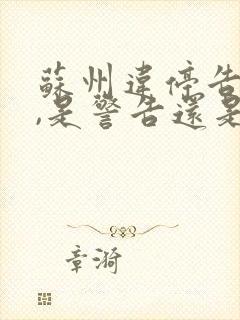 蘇州違停告
,是警告還是
章漪